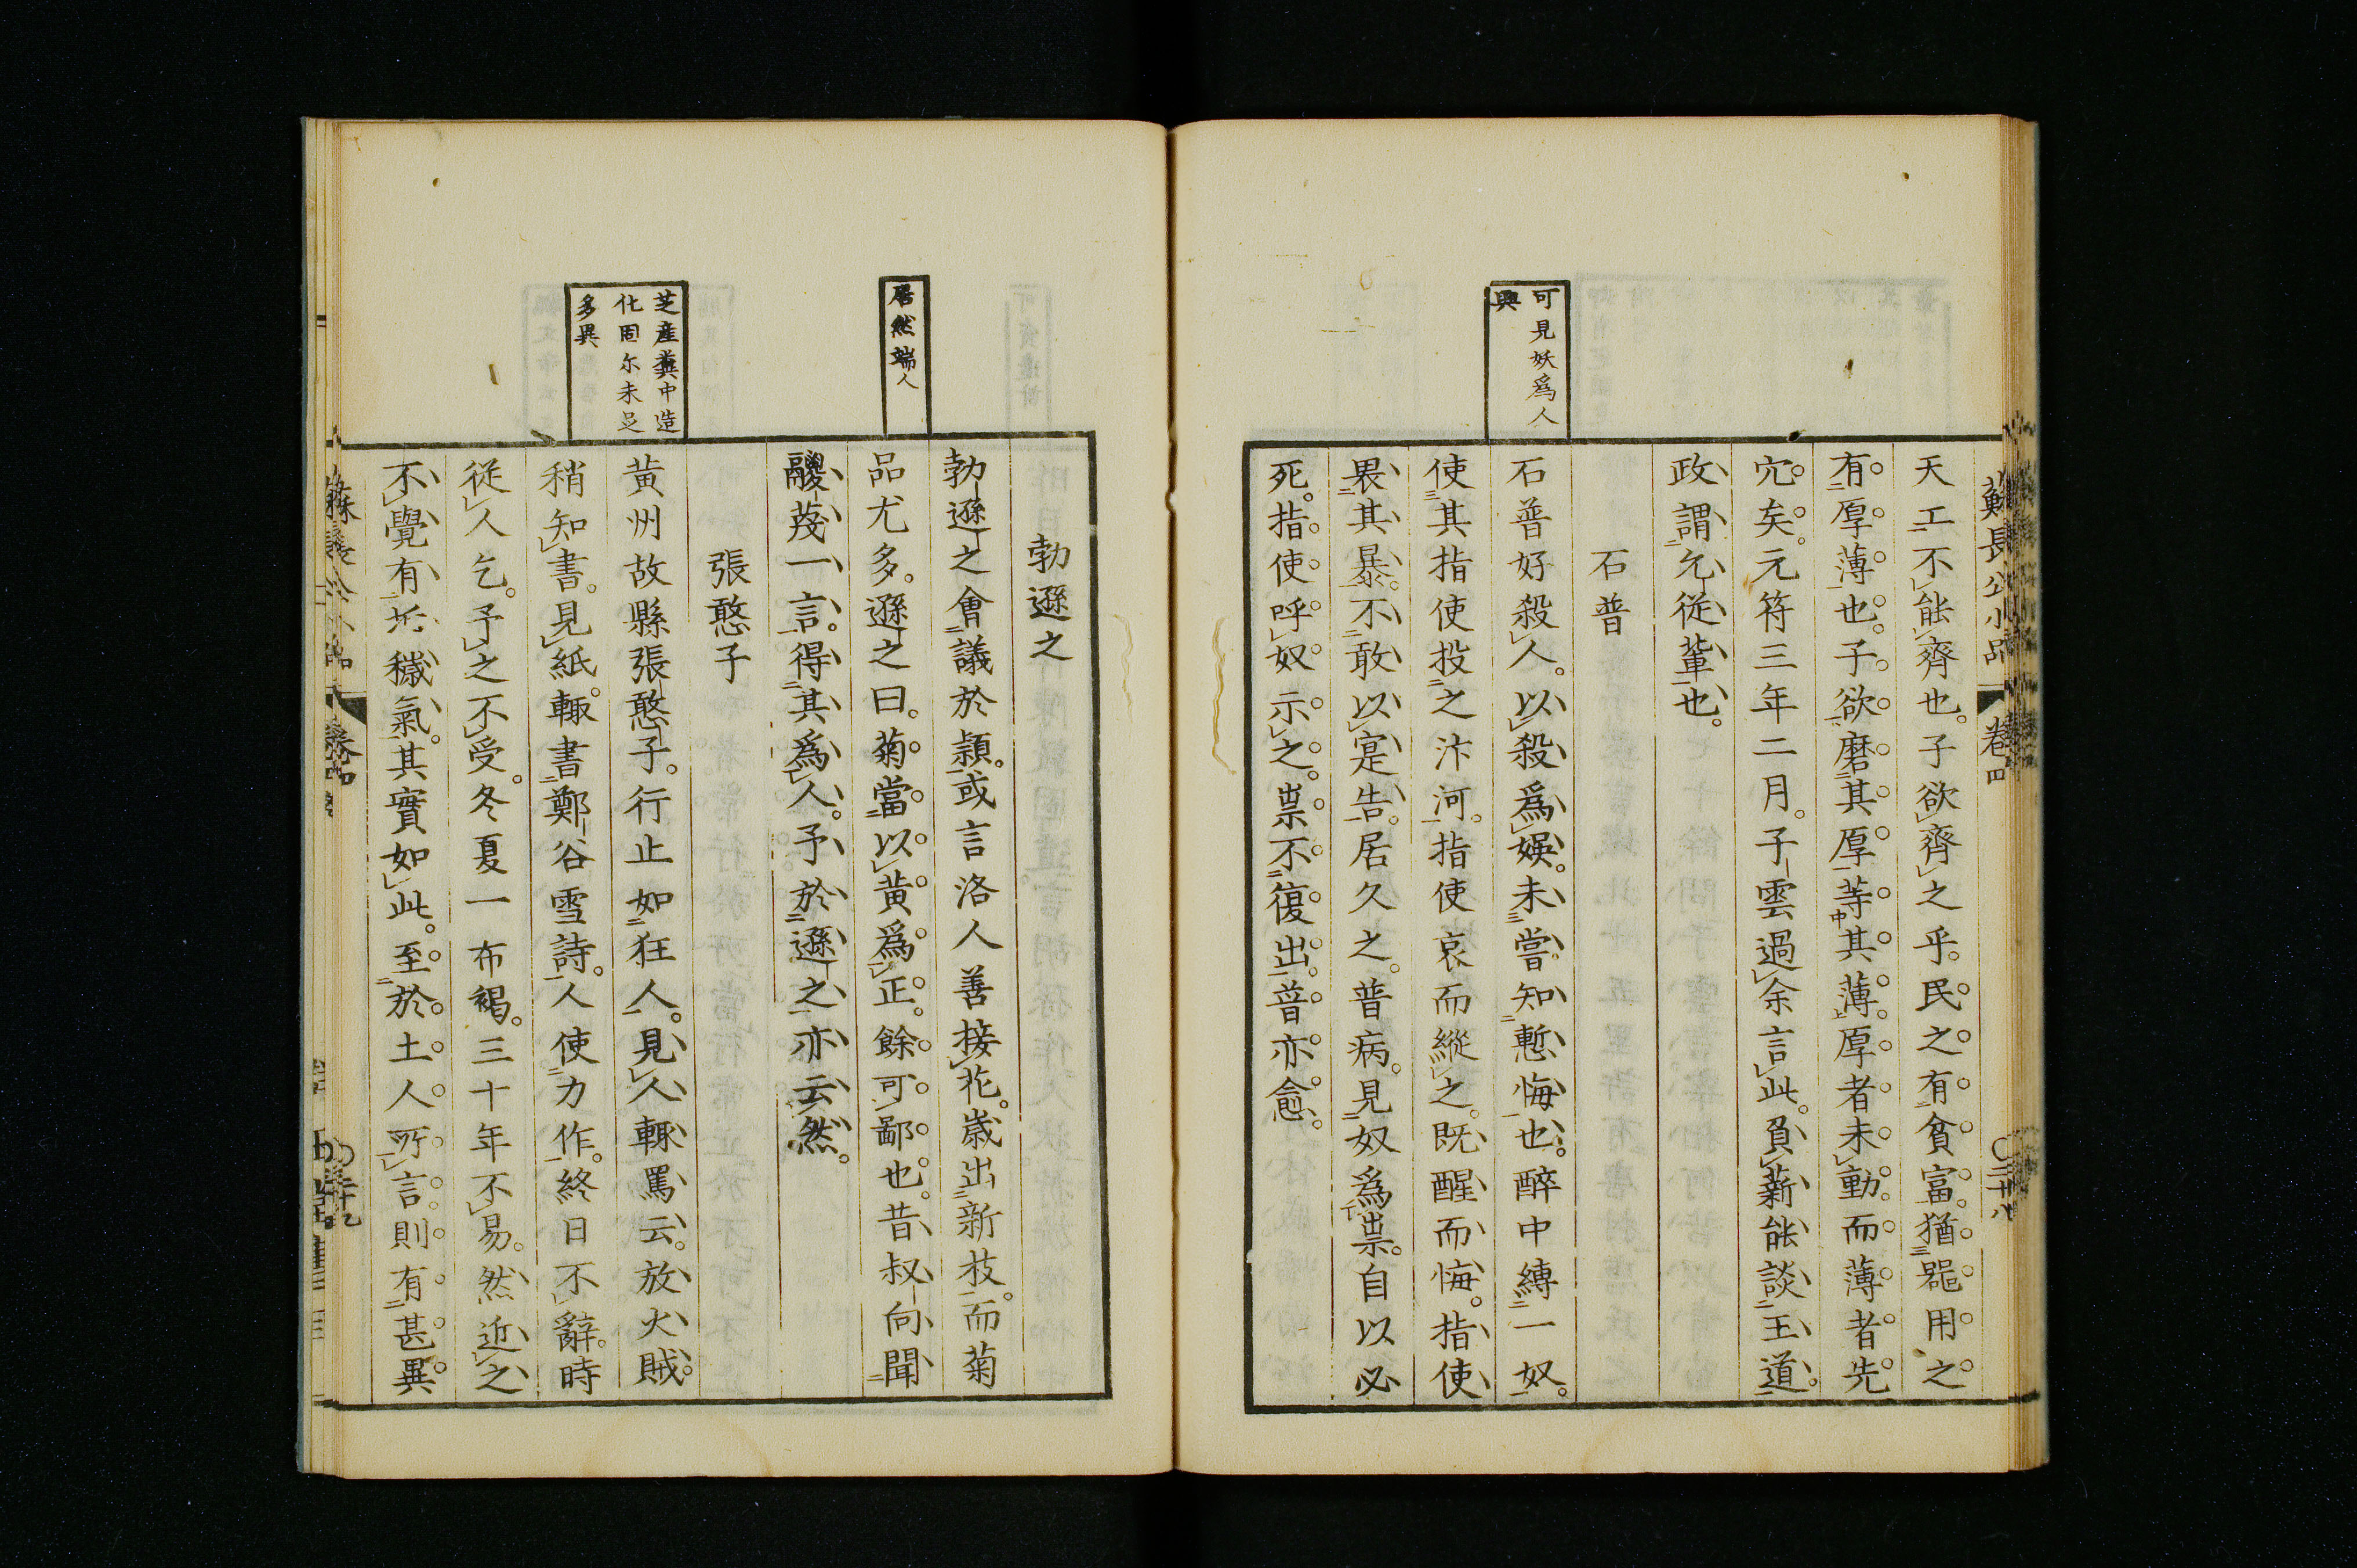 蘇長公小品 卷四 〇二十八
天工不能齊也。子欲齊之乎。民之有貧富。猶噐用之
有厚薄也。子欲磨其厚等其薄。厚者未動。而薄者先
穴矣。元符三年二月。子雲過余言此。負薪能談王道。
政謂允從輩也。
石普
可見妖爲人
興
石普好殺人。以殺爲娛。未嘗知慙悔也。醉中縛一奴。
使其指使投之汴河。指使哀而縱之。既醒而悔。指使
畏其暴。不敢以寔告。居久之。普病。見奴爲祟。自以必
死。指使呼奴示之。祟不復出。普亦愈。
勃遜之
居然端人
勃遜之會議於潁。或言洛人善接花。歲出新枝。而菊
品尤多。遜之曰。菊當以黃爲正。餘可鄙也。昔叔向聞
鬷蔑一言。得其爲人。予於遜之亦云然。
張憨子
芝産糞中造
化固尔未足
多異
黃州故縣張憨子。行止如狂人。見人輒罵云。放火賊。
稍知書。見紙。輒書鄭谷雪詩。人使力作。終日不辭。時
從人乞。予之不受。冬夏一布褐。三十年不易。然近之
不覺有垢穢氣。其實如此。至於土人所言。則有甚異